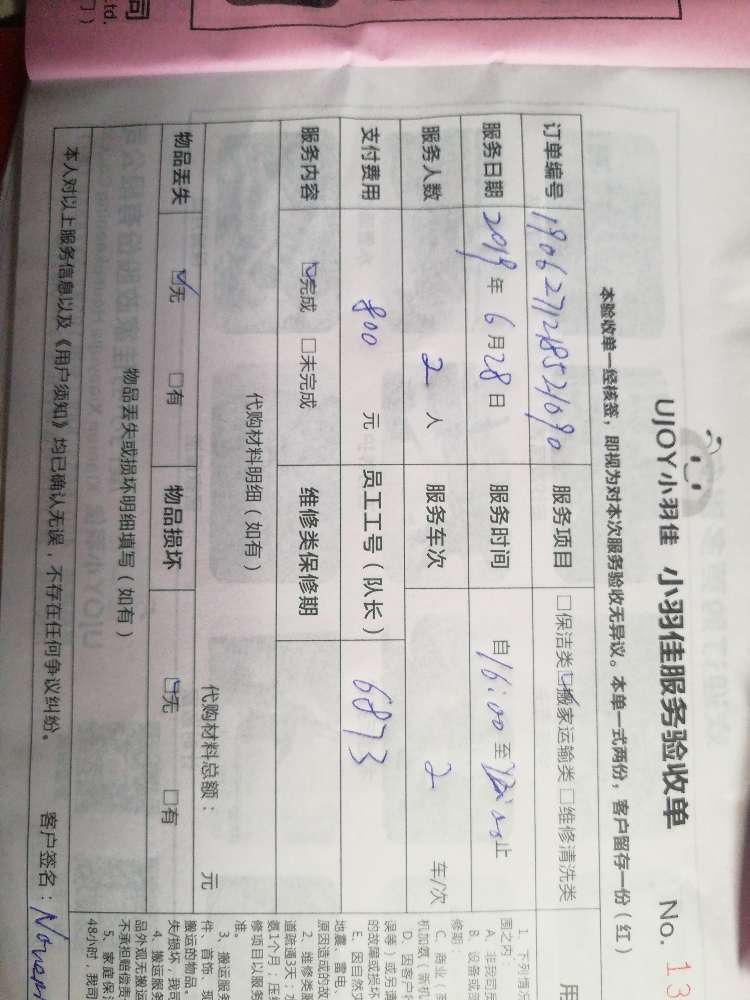 UJOY小羽佳 小羽佳服务验收单 No. 13
本验收单一经核签，即视为对本次服务验收无异议。本单一式两份，客户留存一份（红）
订单编号 1906271218521090 服务项目 □保洁类 ☑搬家运输类 □维修清洗类
服务日期 2019年6月28日 服务时间 自16:00至 止
服务人数 2人 服务车次 2 车/次
支付费用 800 元 员工工号（队长） 6873
服务内容 ☑完成 □未完成 维修类保修期
代购材料明细（如有） 代购材料总额： 元
物品丢失 ☑无 □有 物品损坏 ☑无 □有
物品丢失或损坏明细填写（如有）
本人对以上服务信息以及《用户须知》均已确认无误，不存在任何争议纠纷。 客户签名：
1、下列情况
围之内：
A、非我司员
B、设备或部
修期：
C、商业（
机加氟（新机
D、因客户
误等）或另请
的故障或损坏
E、因自然灾
地震、雷电、
原因造成的故
2、维修类服
道疏通3天；
氨1个月；压
修项目以服务
准。
3、搬运服务
件、首饰、现
搬运的物品。
失/损坏，我司
4、搬运服务
品外观无搬运
不承担赔偿责
5、家庭保洁
48小时，我司
司
td.